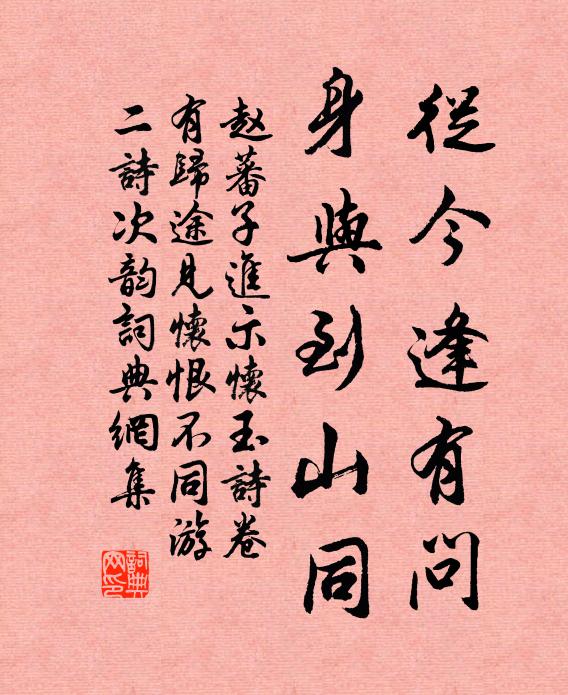 從今逢有問
身與到山同
赵蕃子進示懷玉詩卷
有歸途見懷恨不同游
二詩次韵詞典網集
詞典网印